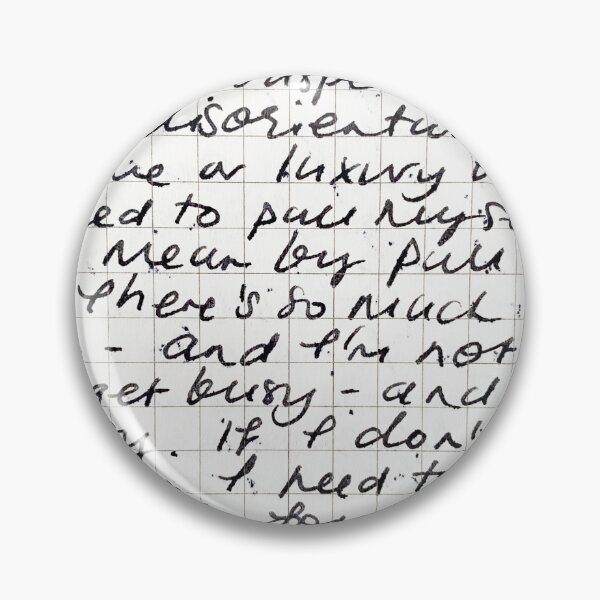 disorientu
ue or luxury
ed to pull mys
mean by pull
there's so much
- and I'm not
get busy - and
. If I don'
I need t
for